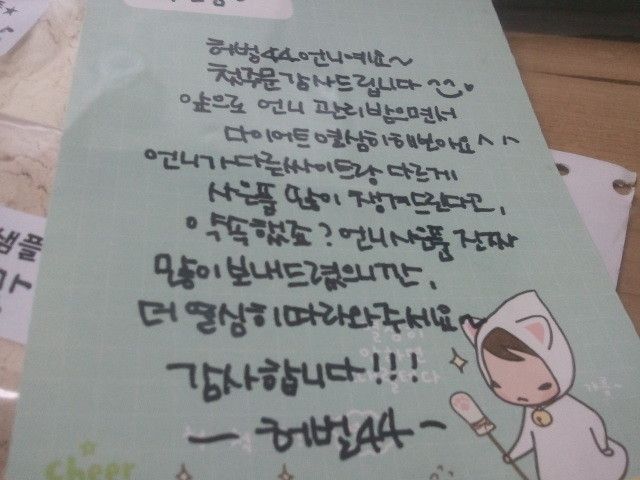 허벌44언니예요~
첫주문감사드립니다
앞으로 언니 관리받으면서
다이어트 열심히해보아요^^
언니가다른싸이트랑 다르게
사은품 많이 챙겨드린다고,
약속했죠? 언니사은품 잔짜
많이보내드렸으니깐,
더 열심히따라와주세요~
감사합니다!!!
- 허벌44 -
cheer
샘플